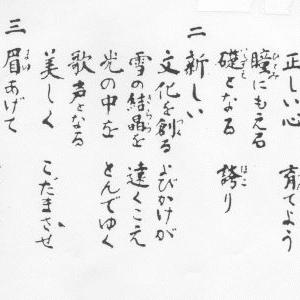 正しい心　育てよう
瞳にもえる
礎となる　誇り
二　新しい
文化を創る　よびかけが
雪の結晶を　遠くこえ
光の中を　とんでゆく
歌声となる
美しく　こだまさせ
三　眉あげて